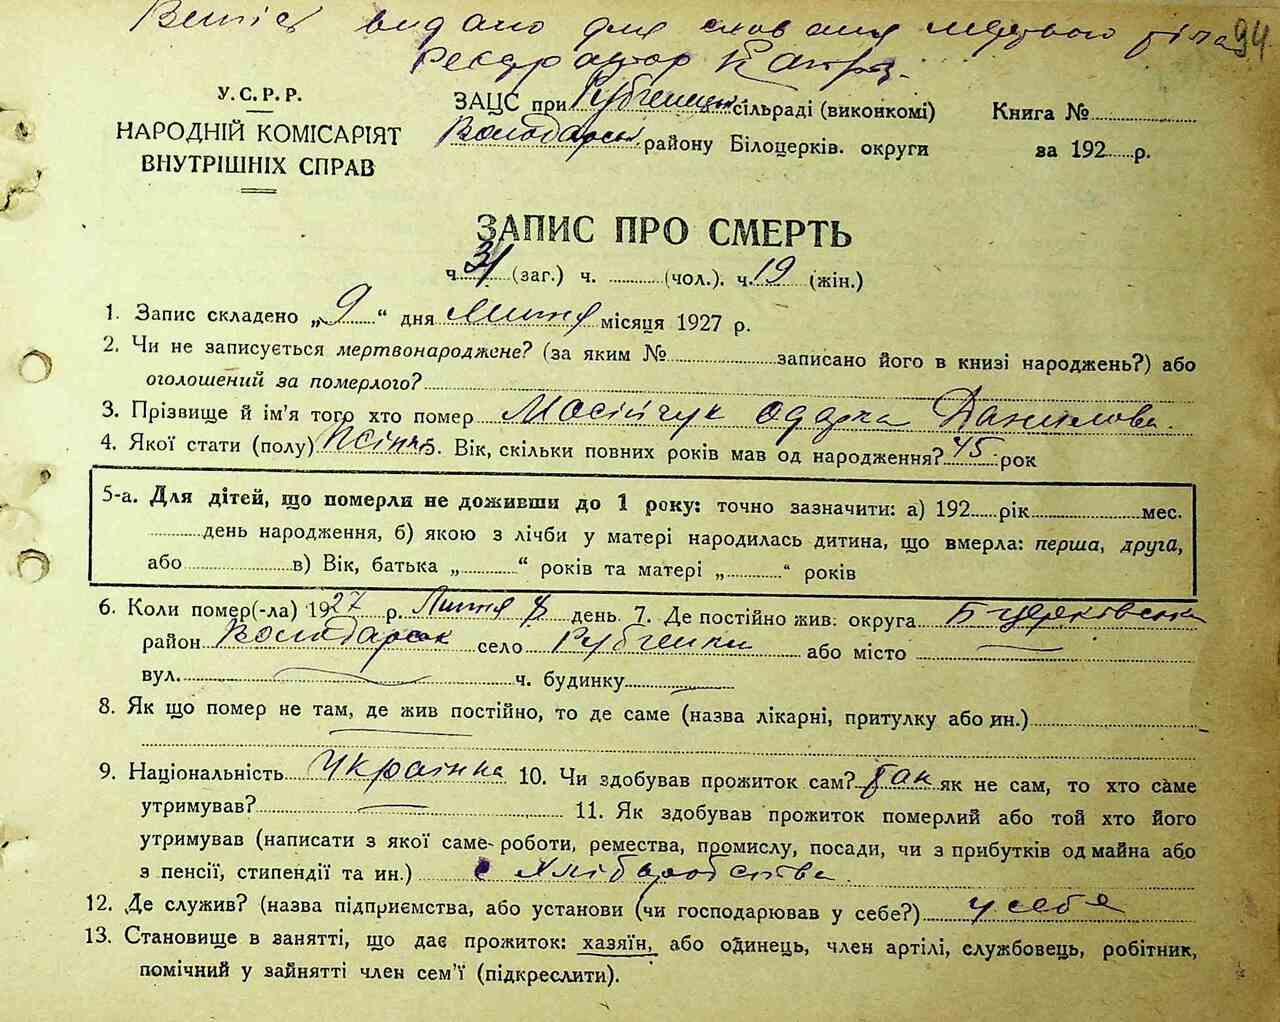 Витяг видано для сховання мертвого тіла
94
Реєстратор
У.С.Р.Р.
НАРОДНІЙ КОМІСАРІЯТ
ВНУТРІШНІХ СПРАВ
ЗАЦС при Рубченецькі сільраді (виконкомі)
Володарськ. району Білоцерків. округи
Книга №
за 192 р.
ЗАПИС ПРО СМЕРТЬ
ч. 31 (заг.) ч. (чол.). ч. 19 (жін.)
1. Запис складено „9“ дня Липня місяця 1927 р.
2. Чи не записується мертвонароджене? (за яким № записано його в книзі народжень?) або
оголошений за померлого?
3. Прізвище й ім'я того хто помер Мосійчук Одарка Данилова.
4. Якої стати (полу) жіноч 5. Вік, скільки повних років мав од народження? 45 рок
5-а. Для дітей, що померли не доживши до 1 року: точно зазначити: а) 192 рік мес.
день народження, б) якою з лічби у матері народилась дитина, що вмерла: перша, друга,
або в) Вік, батька „ “ років та матері „ “ років
6. Коли помер(-ла) 1927 р. Липня 8 день 7. Де постійно жив: округа Б церківська
район Володарськ село Рубченки або місто
вул. ч. будинку
8. Як що помер не там, де жив постійно, то де саме (назва лікарні, притулку або ин.)
9. Національність Українка 10. Чи здобував прожиток сам? так як не сам, то хто саме
утримував? 11. Як здобував прожиток померлий або той хто його
утримував (написати з якої саме роботи, ремества, промислу, посади, чи з прибутків од майна або
з пенсії, стипендії та ин.) с Хліборобства.
12. Де служив? (назва підприємства, або установи (чи господарював у себе?) у себе
13. Становище в занятті, що дає прожиток: хазяїн, або одинець, член артілі, службовець, робітник,
помічний у зайнятті член сем'ї (підкреслити).